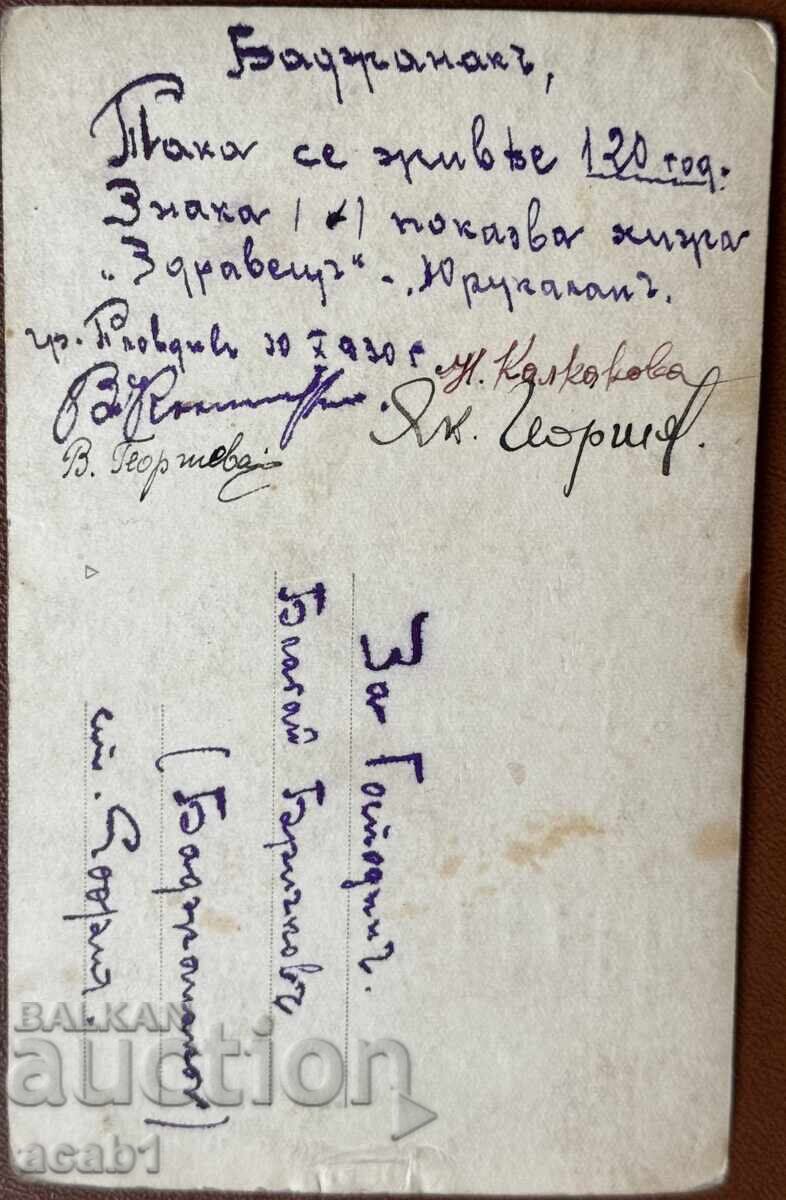 Баджанакъ,
Така се живѣе 120 год.
Знака / ✓ / показва хижа
„Здравецъ“ - „Юрукаланъ.
гр. Пловдивъ 10 X 930 г.
Н. Калкакова
В.
В. Георгиева
Як. Георгиев.
За Господинъ.
Благой Бричковъ
(Баджанакъ)
ст. София.
BALKAN
auction
acab1